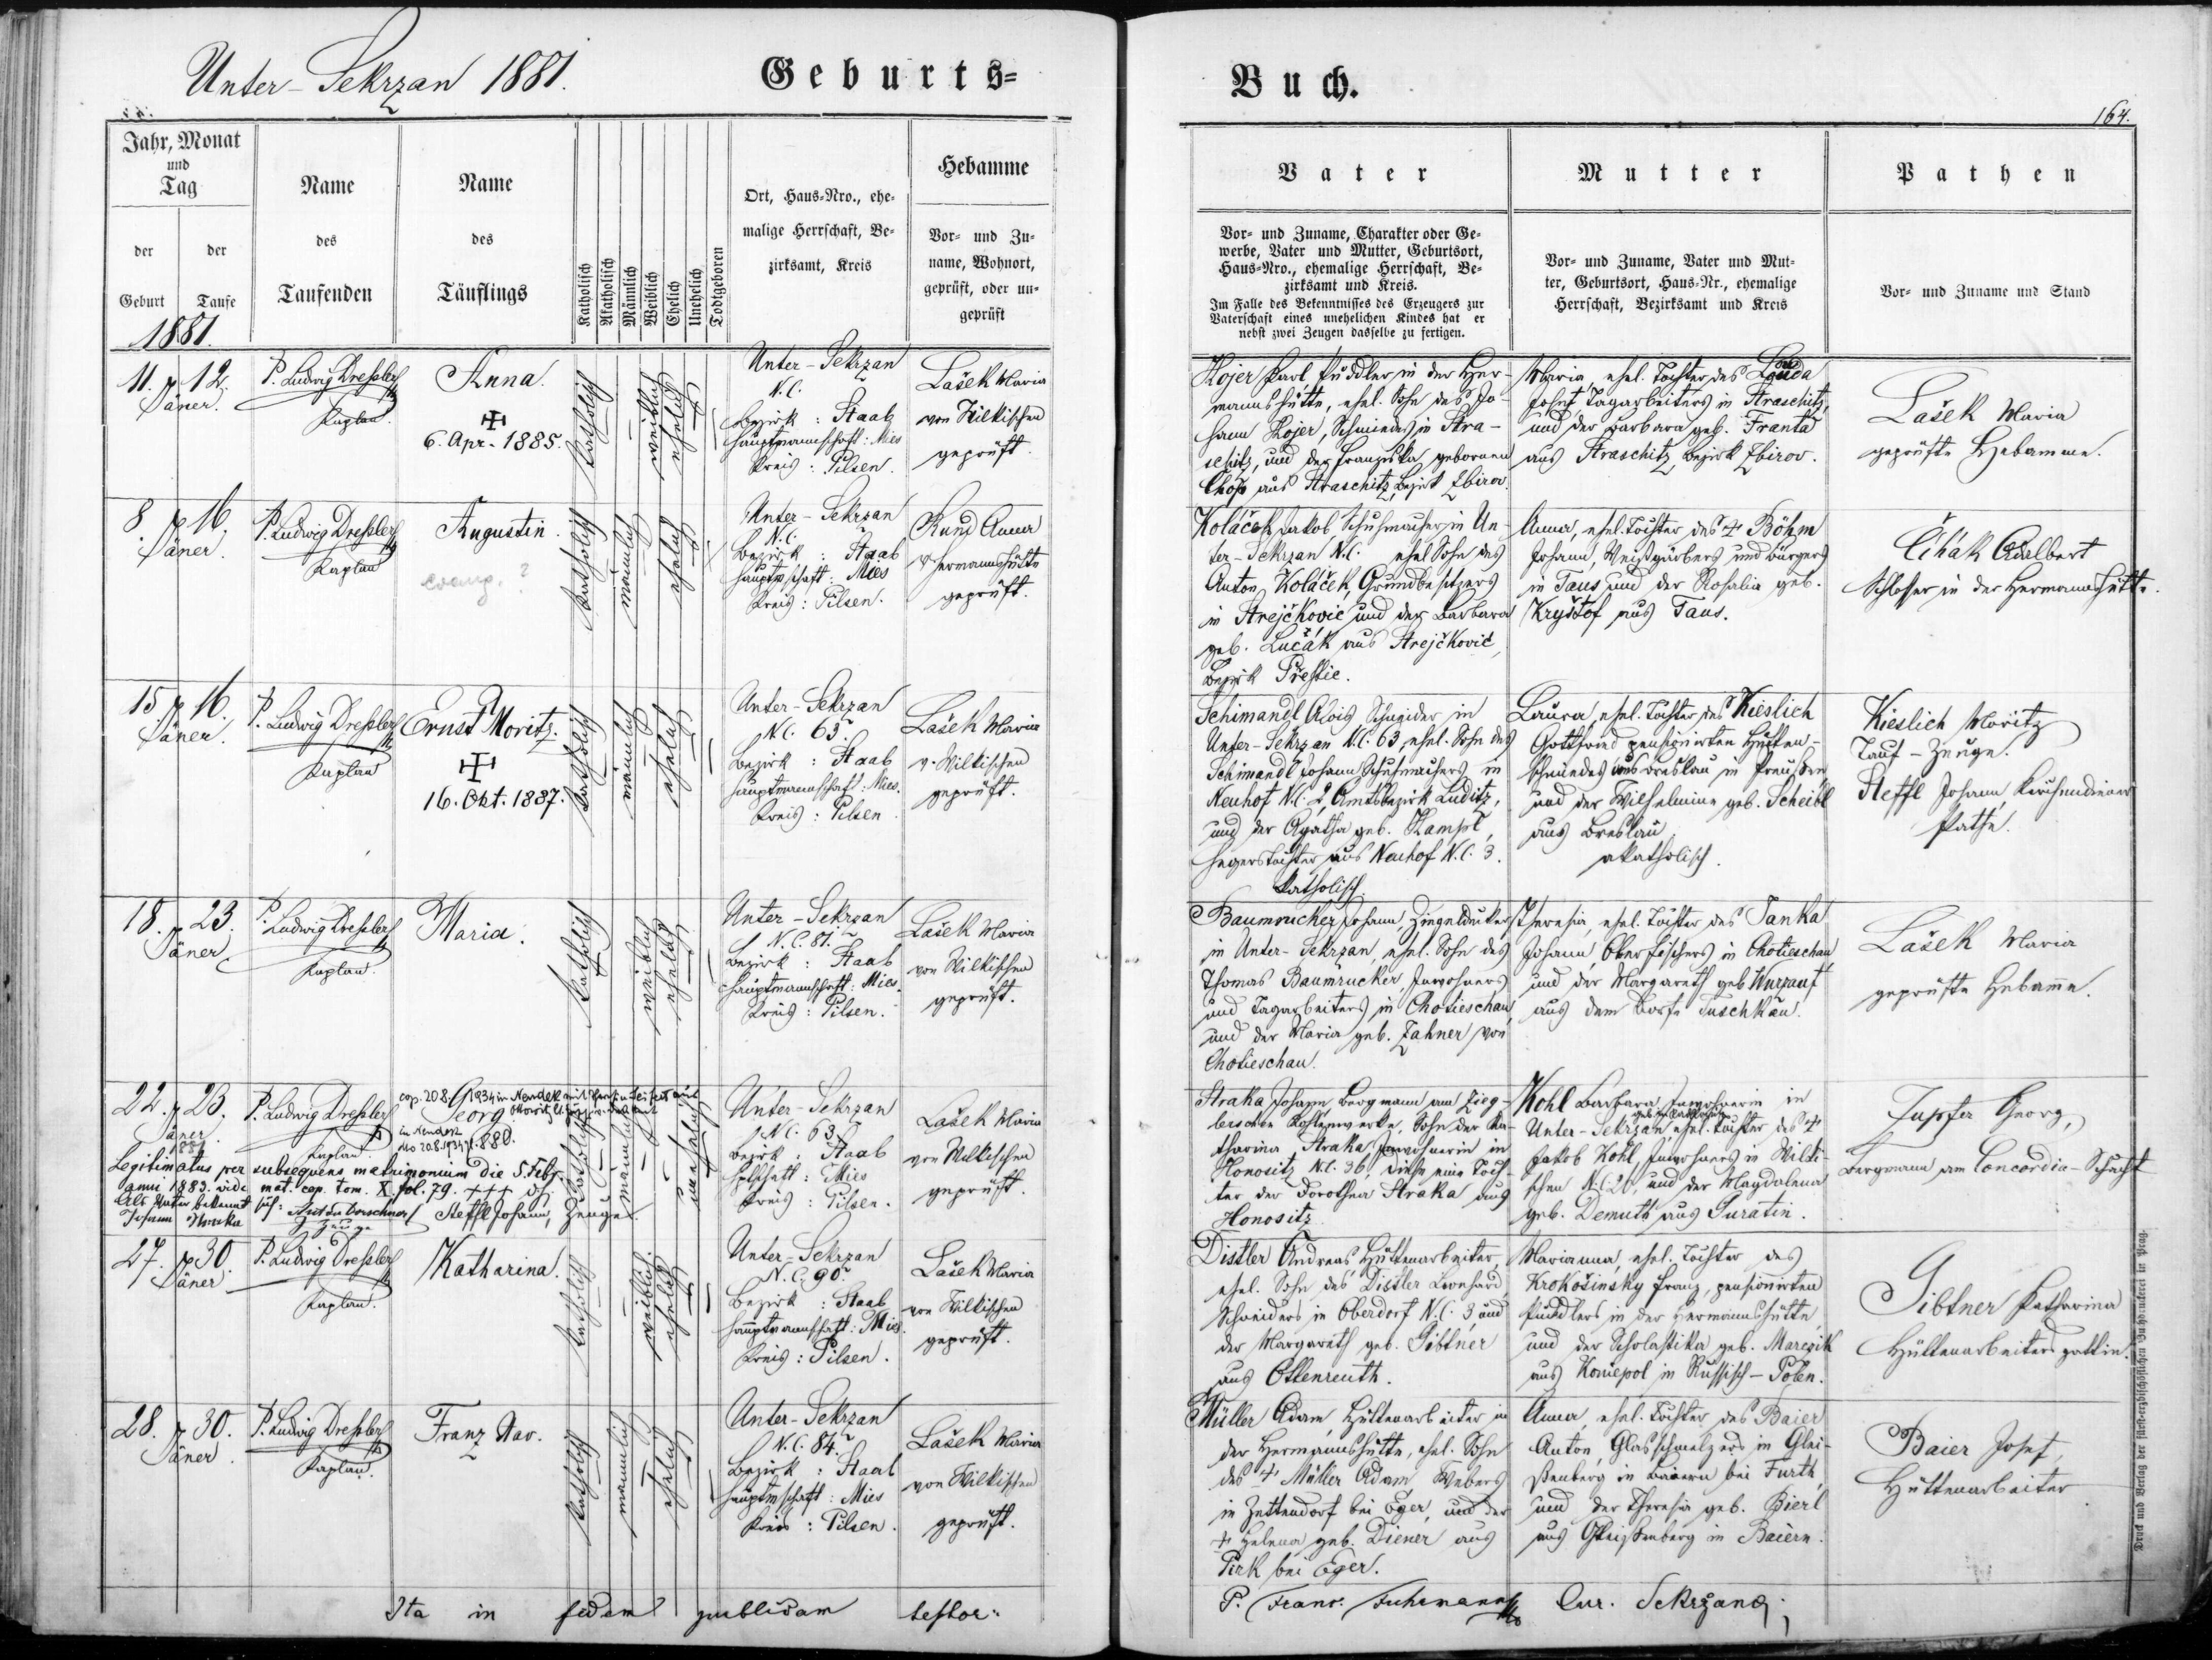 Unter-Sekrzan 1881.
Geburts=
Buch.
164.
Jahr, Monat
und
Tag
der
Geburt
der
Taufe
1881.
Name
des
Taufenden
Name
des
Täuflings
Katholisch
Akatholisch
Männlich
Weiblich
Ehelich
Unehelich
Todtgeboren
Ort, Haus=Nro., ehe=
malige Herrschaft, Be=
zirksamt, Kreis
Hebamme
Vor= und Zu=
name, Wohnort,
geprüft, oder un=
geprüft
Vater
Vor= und Zuname, Charakter oder Ge=
werbe, Vater und Mutter, Geburtsort,
Haus=Nro., ehemalige Herrschaft, Be=
zirksamt und Kreis.
Im Falle des Bekenntnisses des Erzeugers zur
Vaterschaft eines unehelichen Kindes hat er
nebst zwei Zeugen dasselbe zu fertigen.
Mutter
Vor= und Zuname, Vater und Mut=
ter, Geburtsort, Haus=Nr., ehemalige
Herrschaft, Bezirksamt und Kreis
Pathen
Vor= und Zuname und Stand
11. 12.
Jäner.
P. Ludwig Dressler
Kaplan
Anna.
6. Apr. 1885.
katholisch
weiblich
ehelich
Unter-Sekrzan
N.C.
Bezirk : Staab
Hauptmannschaft : Mies
Kreis : Pilsen.
Lašek Maria
von Wilkischen
geprüft.
Hojer Karl Puddler in der Her-
mannshütte, ehel. Sohn des Jo-
hann Hojer, Schmiedes in Stra-
schitz, und der Franziska gebornen
aus Straschitz, Bezirk Zbirov.
Maria, ehel. Tochter des Louda
Josef, Tagarbeiters in Straschitz,
und der Barbara geb. Franta
aus Straschitz Bezirk Zbirov.
Lašek Maria
geprüfte Hebamme.
8. 16.
Jäner.
P. Ludwig Dressler
Kaplan
Augustin.
evang. ?
katholisch
männlich
ehelich
Unter-Sekrzan
N.C.
Bezirk : Staab
Hauptmschaft : Mies
Kreis : Pilsen.
Rund Anna
v. Hermannshütte
geprüft.
Koláček Jakob Schuhmacher in Un-
ter-Sekrzan N.C. ehel Sohn des
Anton Koláček, Grundbesitzers
in Strejčkovic und der Barbara
geb. Lučák aus Strejčkovic,
Bezirk Přestic.
Anna, ehel. Tochter des + Böhm
Johann, Weißgärbers und Bürgers
in Taus und der Rosalia geb.
Kryštof aus Taus.
Čihák Adalbert
Schlosser in der Hermannshütte.
15. 16.
Jäner.
P. Ludwig Dressler
Kaplan
Ernst Moritz.
16. Okt. 1887.
katholisch
männlich
ehelich
Unter-Sekrzan
N.C. 63.
Bezirk : Staab
Hauptmannschaft : Mies.
Kreis : Pilsen
Lašek Maria
v. Wilkischen
geprüft.
Schimandl Alois Schneider in
Unter-Sekrzan N.C. 63, ehel. Sohn des
Schimandl Johann Schuhmachers in
Neuhof N.C. 2, Amtsbezirk Luditz,
und der Agatha geb. Hampl,
Hegerstochter aus Neuhof N.C. 3.
katholisch.
Laura, ehel. Tochter des Kieslich
Gottfried pensionirten Hütten-
schmiedes aus Breslau in Preußen
und der Wilhelmine geb. Scheibl
aus Breslau.
akatholisch.
Kieslich Moritz
Tauf-Zeuge.
Steffl Johann, Kirchendiener
Pathe.
18. 23.
Jäner.
P. Ludwig Dressler
Kaplan.
Maria.
katholisch
weiblich
ehelich
Unter-Sekrzan
N.C. 81.
Bezirk : Staab
Hauptmannschaft : Mies.
Kreis : Pilsen.
Lašek Maria
von Wilkischen
geprüft.
Baumrucker Johann, Ziegeldecker
in Unter-Sekrzan, ehel. Sohn des
Thomas Baumrucker, Inwohners
und Tagarbeiters in Chotieschau,
und der Maria geb. Zahner von
Chotieschau.
Theresia, ehel. Tochter des Janka
Johann, Oberfischers in Chotieschau
und der Margareth geb Wurzauf
aus dem Dorfe Tuschkau.
Lašek Maria
geprüfte Hebamme.
22. 23.
Jäner
1881
P. Ludwig Dressler
Kaplan.
cop. 20.8.1934 in Neudek mit
Georg.
in Neudek
katholisch
männlich
unehelich
Unter-Sekrzan
N.C. 63
Bezirk : Staab
Mies
Kreis : Pilsen.
Lašek Maria
von Wilkischen
geprüft.
Legitimatus per subsequens matrimonium die 5. Feb.
anni 1883. vide mat. cop. tom. X. fol. 79. +++
Als Vater bekennt sich:
Johann Straka
Zeuge
Steffl Johann, Zeuge.
Straka Johann Bergmann am Zieg-
lerschen Kohlenwerke, Sohn der Ka-
tharina Straka, Inwohnerin in
Honositz N.C. 36, diese eine Toch-
ter der Dorothea Straka aus
Honositz.
Kohl Barbara, Inwohnerin in
Unter-Sekrzan, ehel. Tochter des +
Jakob Kohl, Inwohners in Wilki-
schen N.C. 20, und der Magdalena
geb. Demuth aus Guratin.
Zupfer Georg,
Bergmann am Concordia-Schacht
27. 30.
Jäner
P. Ludwig Dressler
Kaplan.
Katharina.
katholisch
weiblich
ehelich
Unter-Sekrzan
N.C. 90.
Bezirk : Staab
Hauptmannschaft : Mies.
Kreis : Pilsen.
Lašek Maria
von Wilkischen
geprüft.
Distler Andreas, Hüttenarbeiter,
ehel. Sohn des Distler Leonhard,
Schneiders in Oberdorf N.C. 3 und
der Margareth geb. Gibtner
aus Ottenreuth.
Marianna, ehel. Tochter des
Krokošinsky Franz, pensionirten
Puddlers in der Hermannshütte,
und der Scholastika geb. Marezik
aus Koniepol in Russisch-Polen.
Gibtner Katharina
Hüttenarbeitersgattin.
28. 30.
Jäner.
P. Ludwig Dressler
Kaplan.
Franz Xav.
katholisch
männlich
ehelich
Unter-Sekrzan
N.C. 84.
Bezirk : Staab
Hauptmschaft : Mies
Kreis : Pilsen.
Lašek Maria
von Wilkischen
geprüft.
Müller Adam, Hüttenarbeiter in
der Hermannshütte, ehel. Sohn
des + Müller Adam Webers
in Zettendorf bei Eger, und der
+ Helena geb. Diener aus
Pirk bei Eger.
Anna, ehel. Tochter des Baier
Anton, Glasschmelzers in Glei-
ßenberg in Baiern bei Furth,
und der Theresia geb. Bierl
aus Gleißenberg in Baiern.
Baier Josef,
Hüttenarbeiter
Ita in fidem publicam testor:
P. Franc. Fuhrmann Cur. Sekržanę.
Druck und Verlag der fürsterzbischöflichen Buchdruckerei in Prag.